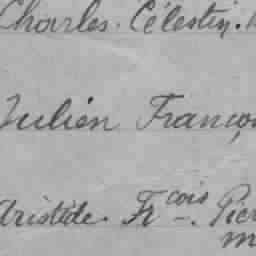 Charles. Célestin.
Julien Franço
Aristide. Fr cois. Pier
m